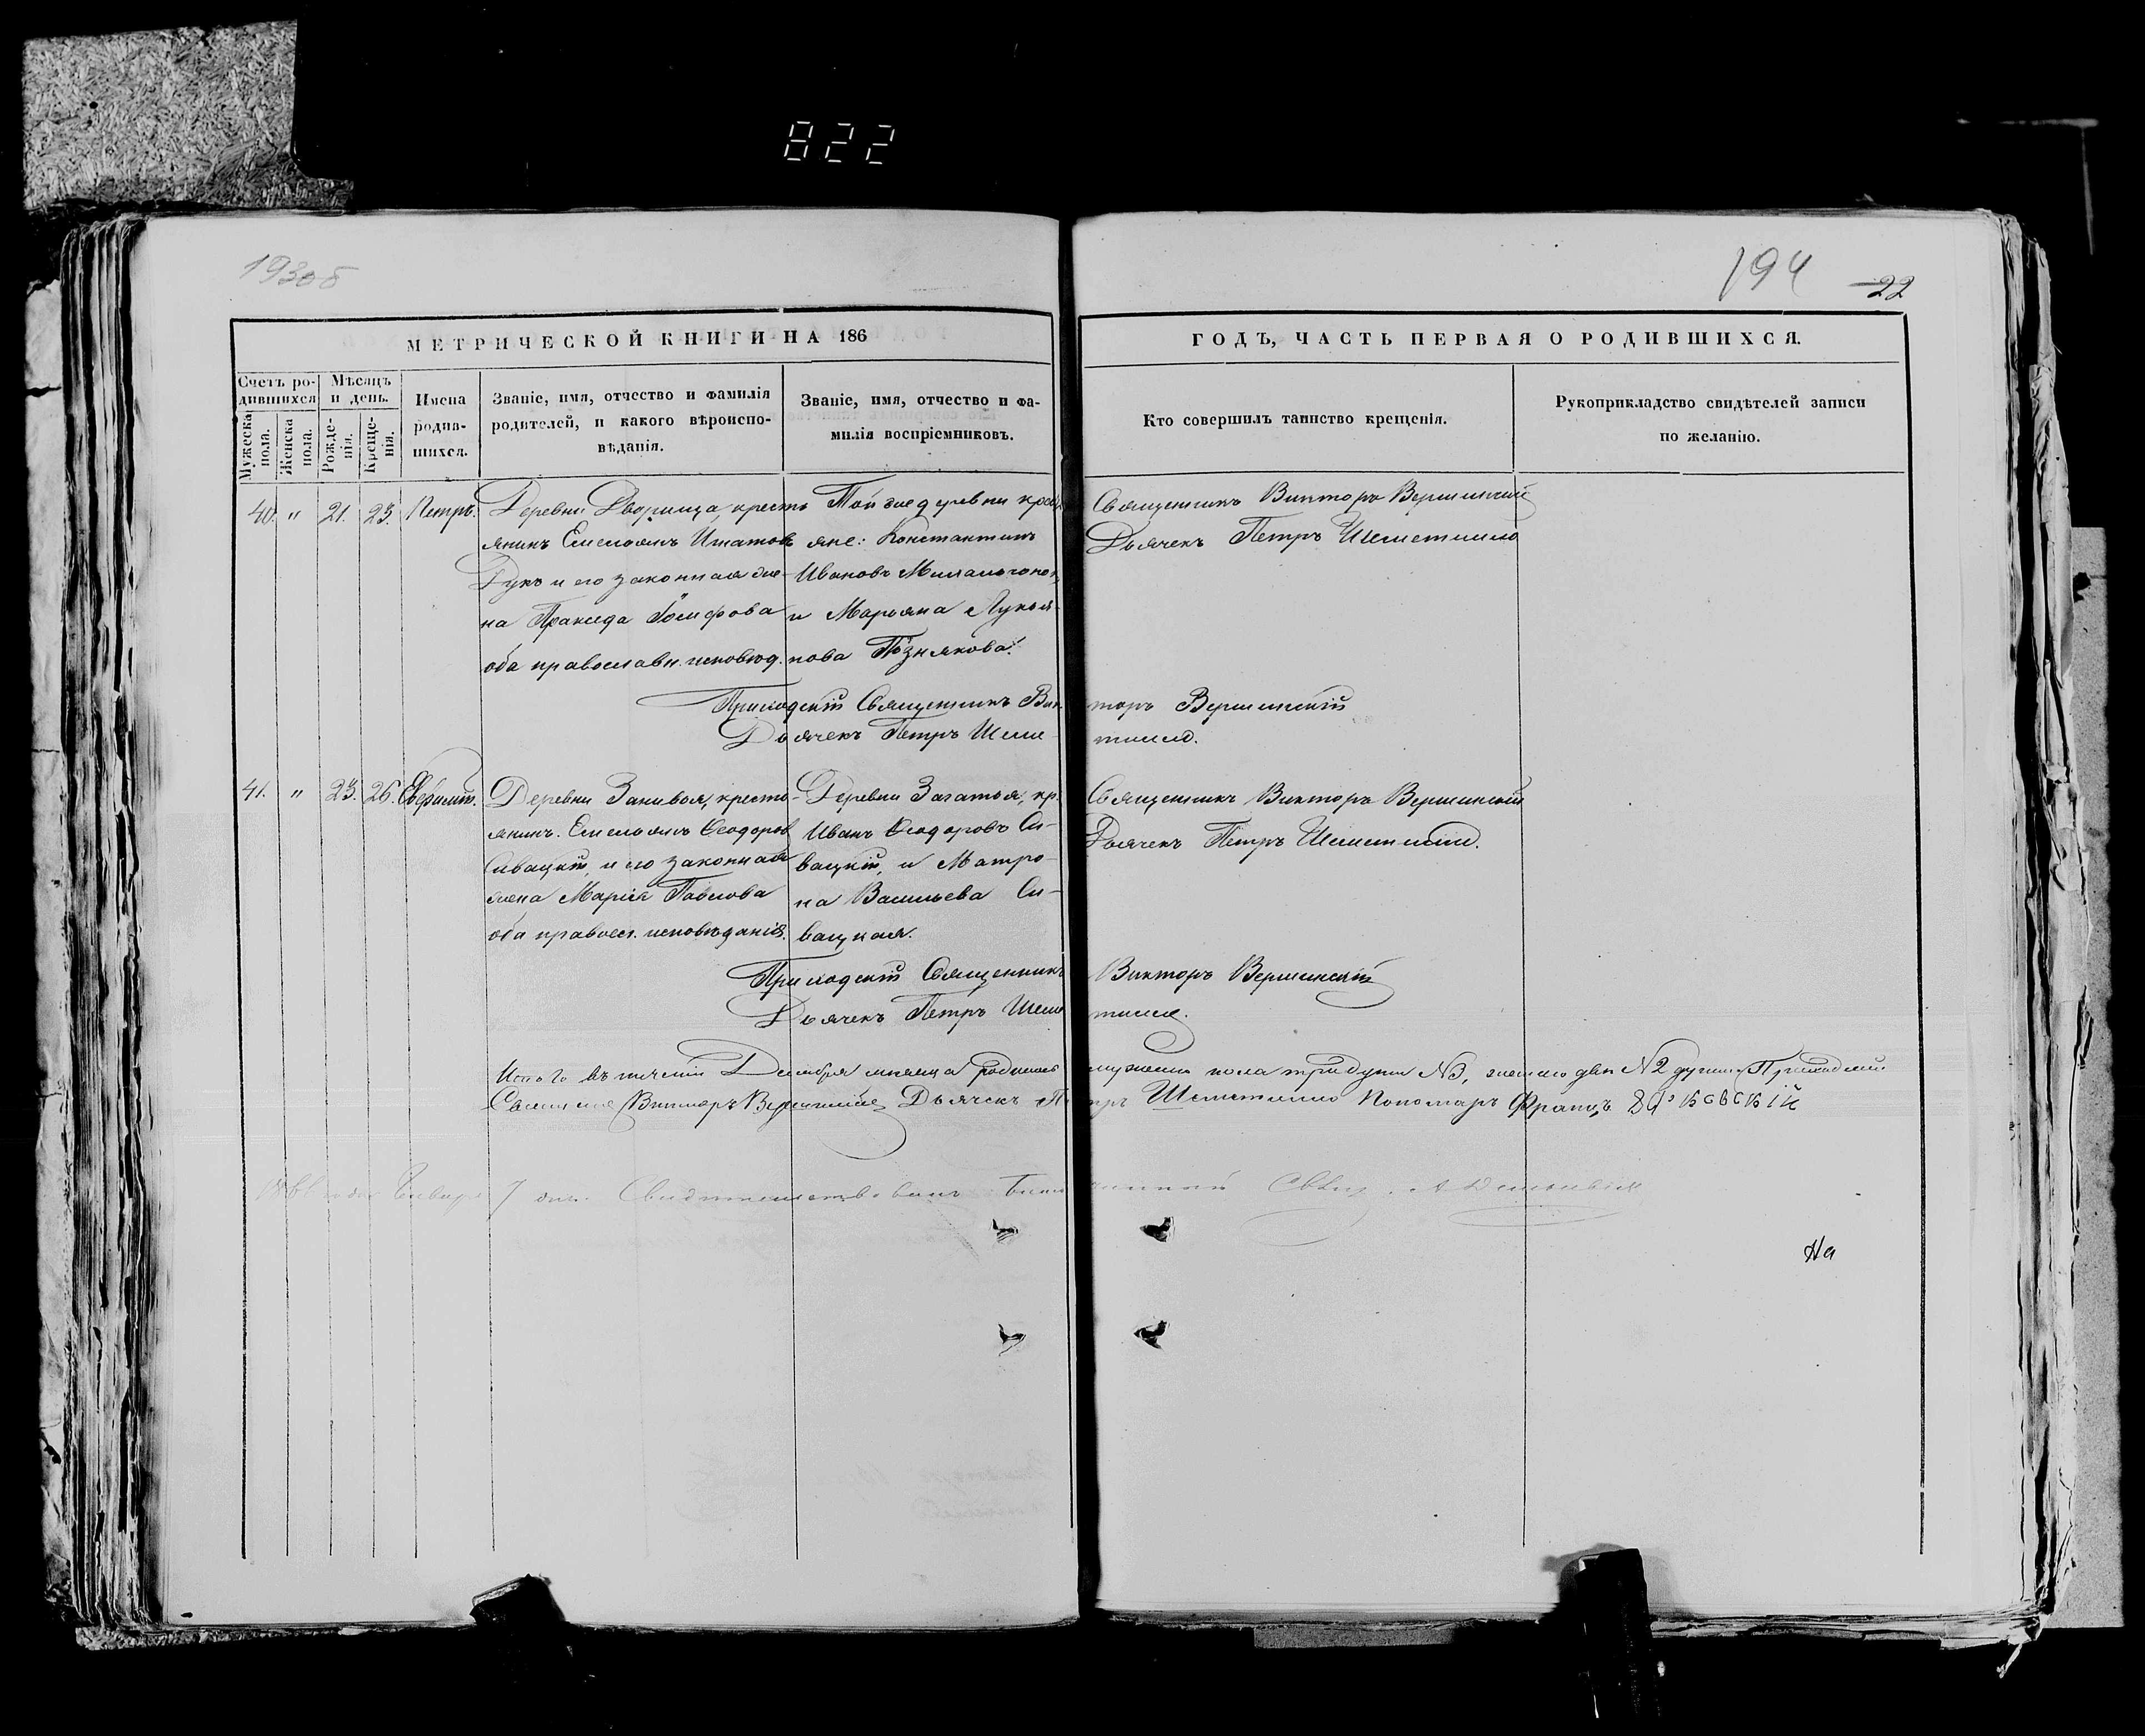 822
193об
194 22
МЕТРИЧЕСКОЙ КНИГИ НА 186
ГОДЪ, ЧАСТЬ ПЕРВАЯ О РОДИВШИХСЯ.
Счетъ ро-
дившихся
Мужеска
пола.
Женска
пола.
Мѣсяцъ
и день.
Рожде-
нія.
Креще-
нія.
Имена
родив-
шихся.
Званіе, имя, отчество и фамилія
родителей, и какого вѣроиспо-
вѣданія.
Званіе, имя, отчество и фа-
милія воспріемниковъ.
Кто совершилъ таинство крещенія.
Рукоприкладство свидѣтелей записи
по желанію.
40. " 21. 23. Петръ.
Деревни Дворища, кресть
янинъ Емельянъ Игнатовъ
Дукъ и его законная же-
на Пракседа Іосифова
оба православн. исповѣд.
Той же деревни кресть
яне: Константинъ
Ивановъ
и Марьяна Лукья-
нова Познякова.
Священникъ Викторъ Вершинскій
Дьячекъ Петръ Шеметилло
Приходскій Священникъ Викторъ Вершинскій
Дьячекъ Петръ Шеметилло.
41. " 23. 26.
Деревни крестья-
янинъ. Емельянъ Ѳеодоровъ
Сивацкій, и его законная
жена Марія Павлова
оба правосл. исповѣданія.
Деревни Загатья, кр.
Иванъ Ѳеодоровъ Си-
вацкій, и Матро-
на Васильева Си-
вацкая.
Священникъ Викторъ Вершинскій
Дьячекъ Петръ Шеметилло.
Приходскій Священникъ Викторъ Вершинскій
Дьячекъ Петръ Шеметилло.
Итого въ теченіи Декабря мѣсяца родилось мужеска пола три души №3, женска двѣ №2 души Приходскій
Священникъ Викторъ Вершинскій Дьячекъ Петръ Шеметилло Пономарь Францъ
1866 года Января 7 дня. Свидѣтельствовалъ
На